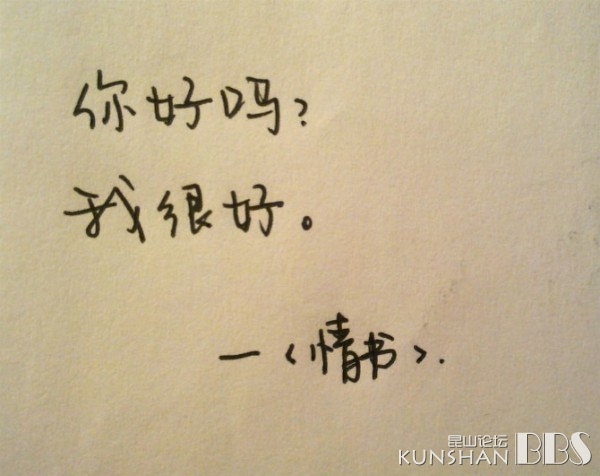 你好吗?
我很好。
—<情书>.
昆山论坛
KUNSHAN BBS